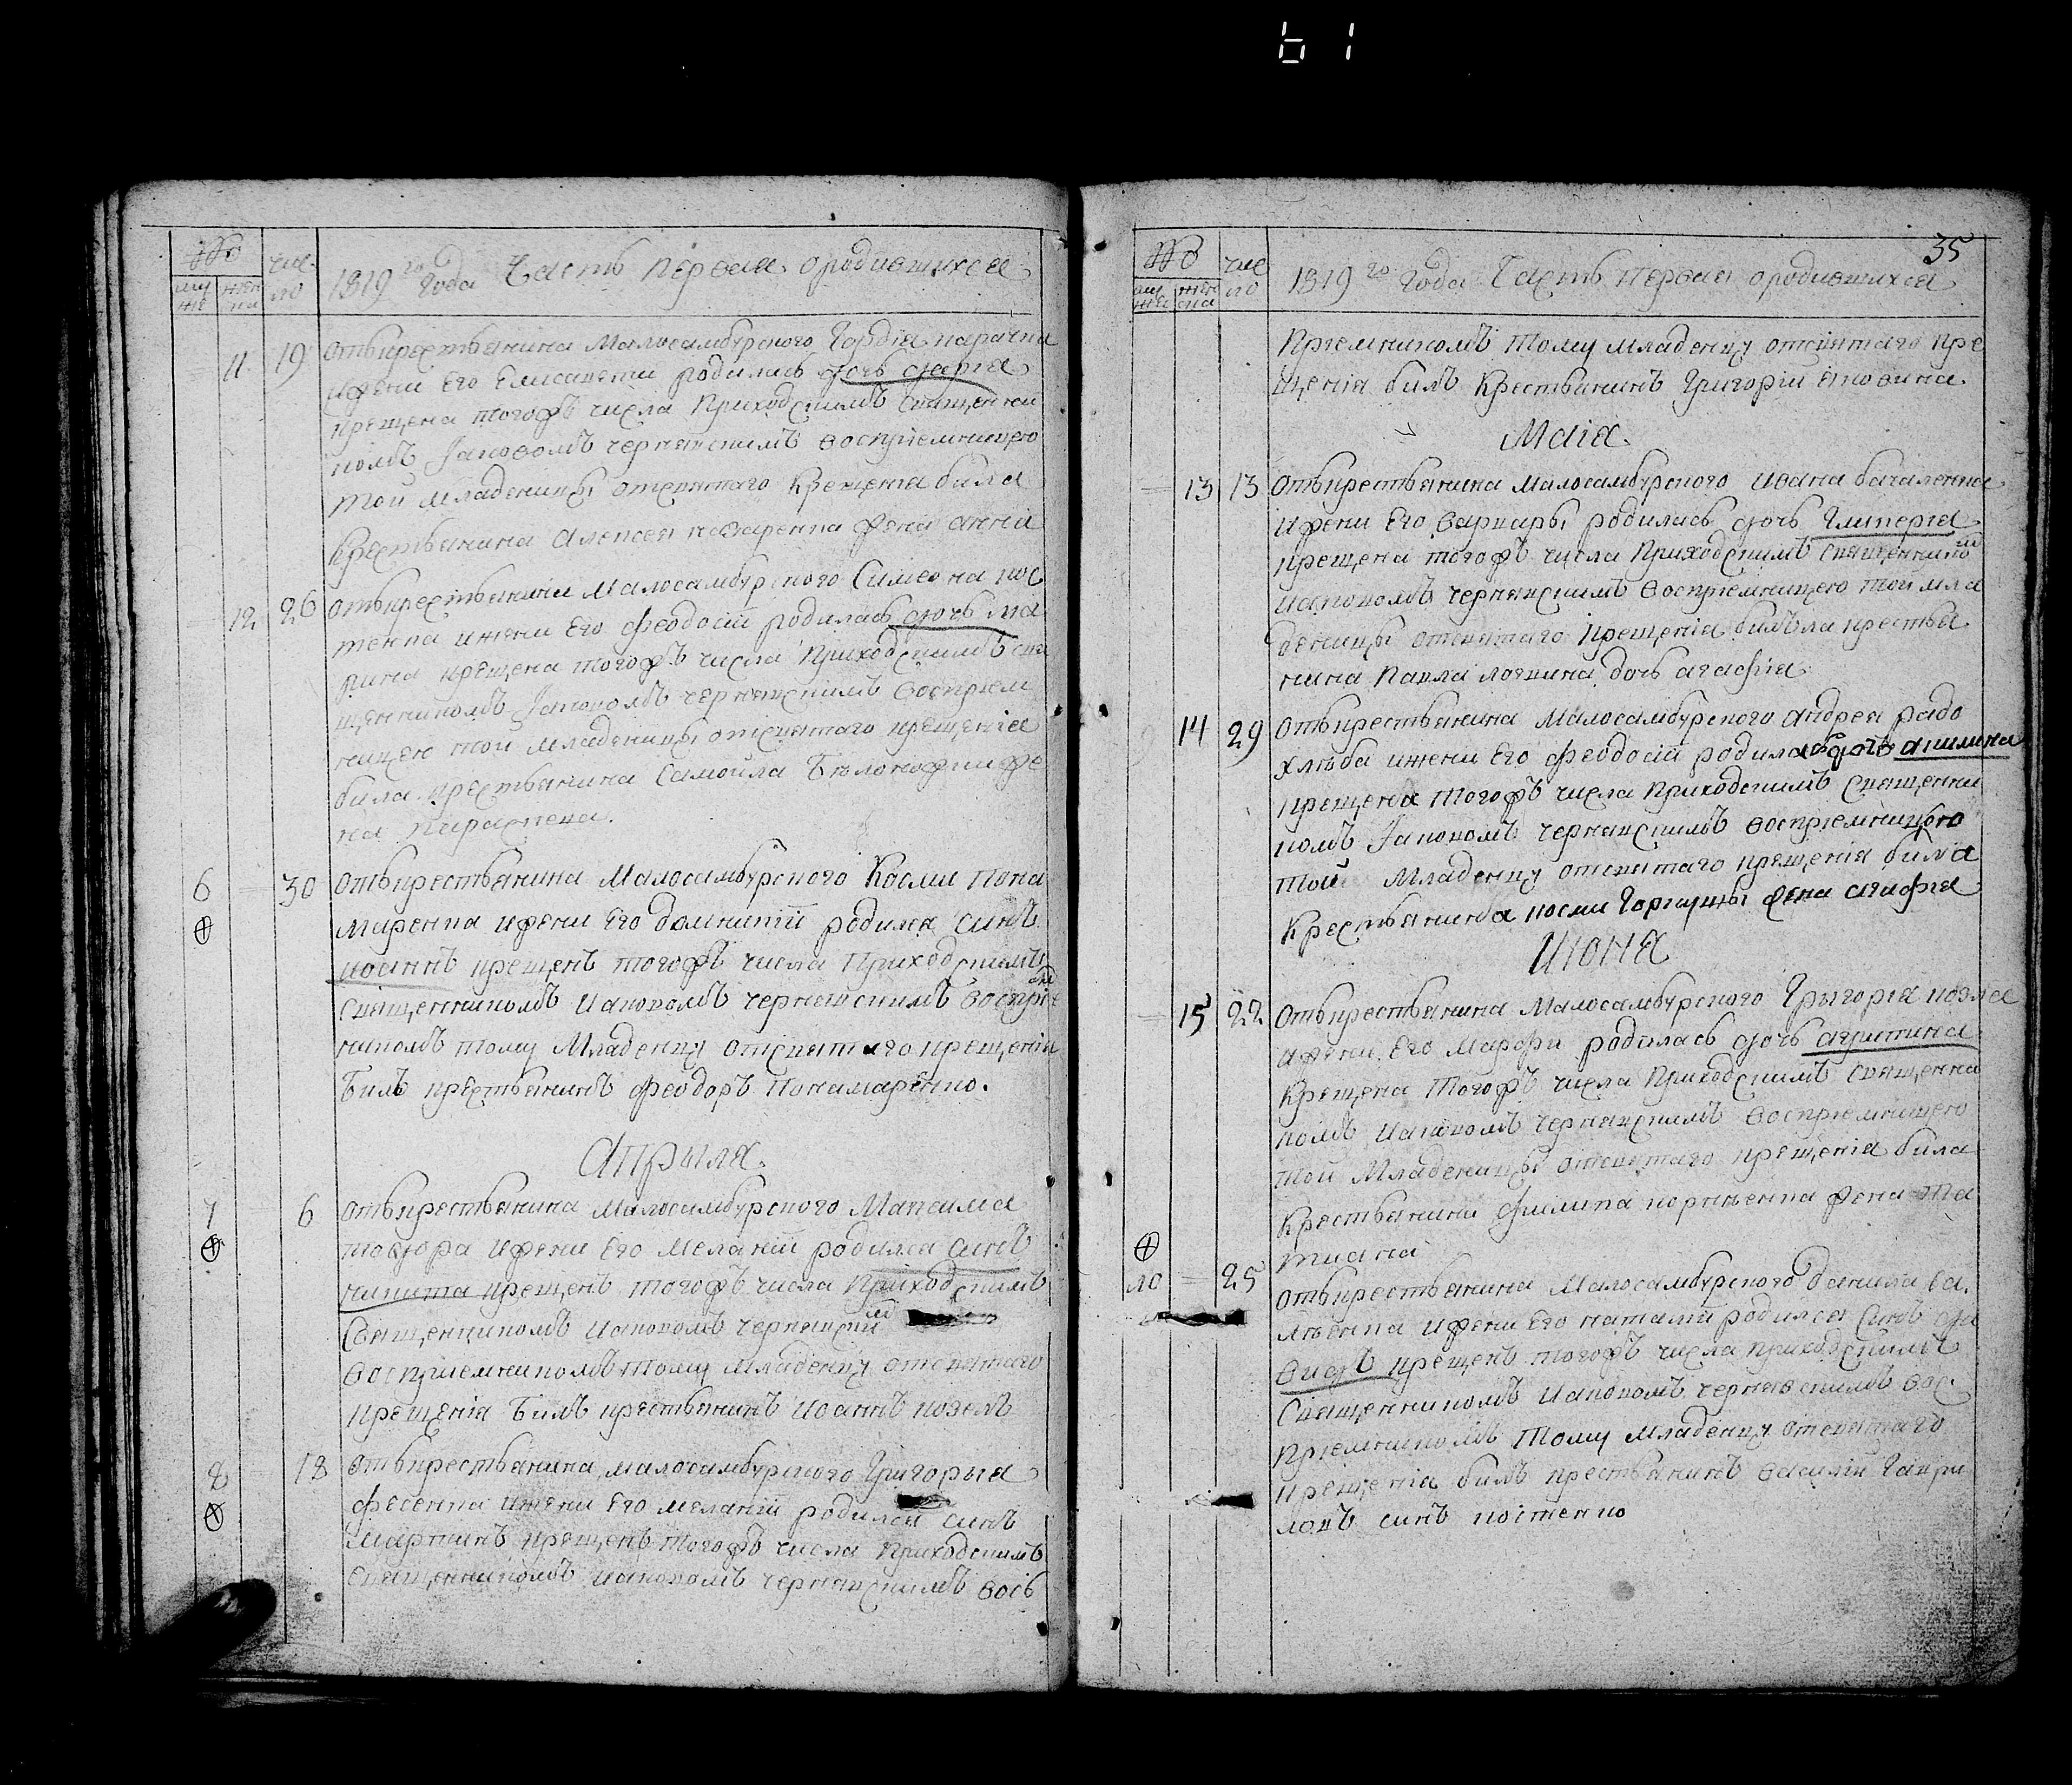 61
№
му же
жен ска
чис ло
1819го Года Часть Первая ородившихся
11 19 Отькрестьянина Малосамбурского Гордіа
ижени Его Елисавети родилась дочь дарія
крещена тогожъ числа Приходскимъ Священни
комъ Іаковомъ чернявскимъ воспріемницею
той младеници отсвятаго Крещенія била
Крестьянина Алексея назаренка жена анна
12 26 Отькрестьянина Малосамбурского Симеона кос
тенка ижени Его феодосіи родилась дочь ма
рина крещена тогожъ числа Приходскимъ свя
щенникомъ Іаковомъ чернявскимъ воспріем
ницею той младеници отсвятаго крещеніа
била крестьянина Самойла Белоножки же
на Параскева.
6 30 Отькрестьянина Малосамбурского Косми Пона
маренка ижени Его домникіи родился синъ
иоаннъ крещенъ тогожъ числа Приходскимъ
Священникомъ Иаковомъ чернявскимъ воспріем
никомъ тому Младенцу отсвятаго крещенія
Билъ крестьянинъ Феодоръ Понамаренко.
Апрыля.
7 6 Отькрестьянина Малосамбурского Максима
ижени Его Меланіи родился синъ
никита крещенъ тогожъ числа Приходскимъ
Священникомъ Иаковомъ чернявским
восприемникомъ тому младенцу отсвятаго
крещенія Билъ крестьянинъ Иоаннъ козелъ
8 18 Отькрестьянина малосамбурского Григорыя
фесенка ижени Его меланіи родился синъ
Мартинъ крещенъ тогожъ числа Приходскимъ
священникомъ Иаковомъ чернявскимъ вось
35
№
му жес
жен ска
чис ло
1819го Года Часть Первая ородившихся
Приемникомъ тому младенцу отсвятаго кре
щенія билъ Крестьянинъ Григорій
Маіа.
13 13 Отькрестьянина Малосамбурского Ивана
ижени Его варвары родилась дочь Гликерія
крещена тогожъ числа Приходскимъ священником
иаковомъ чернявскимъ воспріемницею той мла
деници отсвятаго крещенія била крестья
нина Павла логвина дочь агафія
14 29 Отькрестьянина Малосамбурского андрея радо
хлѣба ижени Его феодосіи родилась дочь акилина
крещена тогожъ числа Приходскимъ Священни
комъ Іаковомъ чернявскимъ воспріемницею
той Младенцу отсвятаго крещенія била
Крестьянина косми жена агафія
Июня
15 22 Отькрестьянина Малосамбурского Грыгорія козла
ижени Его Марфи родилась дочь агрипина
Крещена тогожъ числа Приходскимъ Священни
комъ Иаковомъ чернявскимъ воспріемницею
той Младеници отсвятаго крещенія била
Крестьянина филипа корнѣенка жена та
тиана
10 25 Отькрестьянина Малосамбурского данила ва
лѣенка ижени Его наталіи родился синъ да
видъ крещенъ тогожъ числа приходскимъ
Священникомъ Иаковомъ чернявскимъ вос
пріемникомъ тому младенцу отсвятаго
крещенія билъ крестьянинъ василій Гаври
ловъ синъ костенко